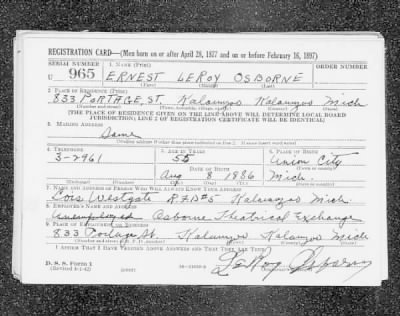 REGISTRATION CARD—(Men born on or after April 28, 1877 and on or before February 16, 1897)
SERIAL NUMBER 1. NAME (Print) ORDER NUMBER
U 965 ERNEST LEROY OSBORNE
(First) (Middle) (Last)
2. PLACE OF RESIDENCE (Print)
833 PORTAGE, ST. Kalamzoo Kalamzoo Mich
(Number and street) (Town, township, village, or city) (County) (State)
[THE PLACE OF RESIDENCE GIVEN ON THE LINE ABOVE WILL DETERMINE LOCAL BOARD
JURISDICTION; LINE 2 OF REGISTRATION CERTIFICATE WILL BE IDENTICAL]
3. MAILING ADDRESS
Same
[Mailing address if other than place indicated on line 2. If same insert word same]
4. TELEPHONE 5. AGE IN YEARS 6. PLACE OF BIRTH
3-2961 55 Union City
DATE OF BIRTH
Aug 8 1886 Mich.
7. NAME AND ADDRESS OF PERSON WHO WILL ALWAYS KNOW YOUR ADDRESS
Westgate R.F.D #5 Kalamzoo Mich.
8. EMPLOYER'S NAME AND ADDRESS
Osborne Theatrical Exchange
9. PLACE OF EMPLOYMENT OR BUSINESS
833 Portage St. Kalamzoo Kalamzoo Mich
I AFFIRM THAT I HAVE VERIFIED ABOVE ANSWERS AND THAT THEY ARE TRUE.
D. S. S. Form 1
(Revised 4-1-42) (over)